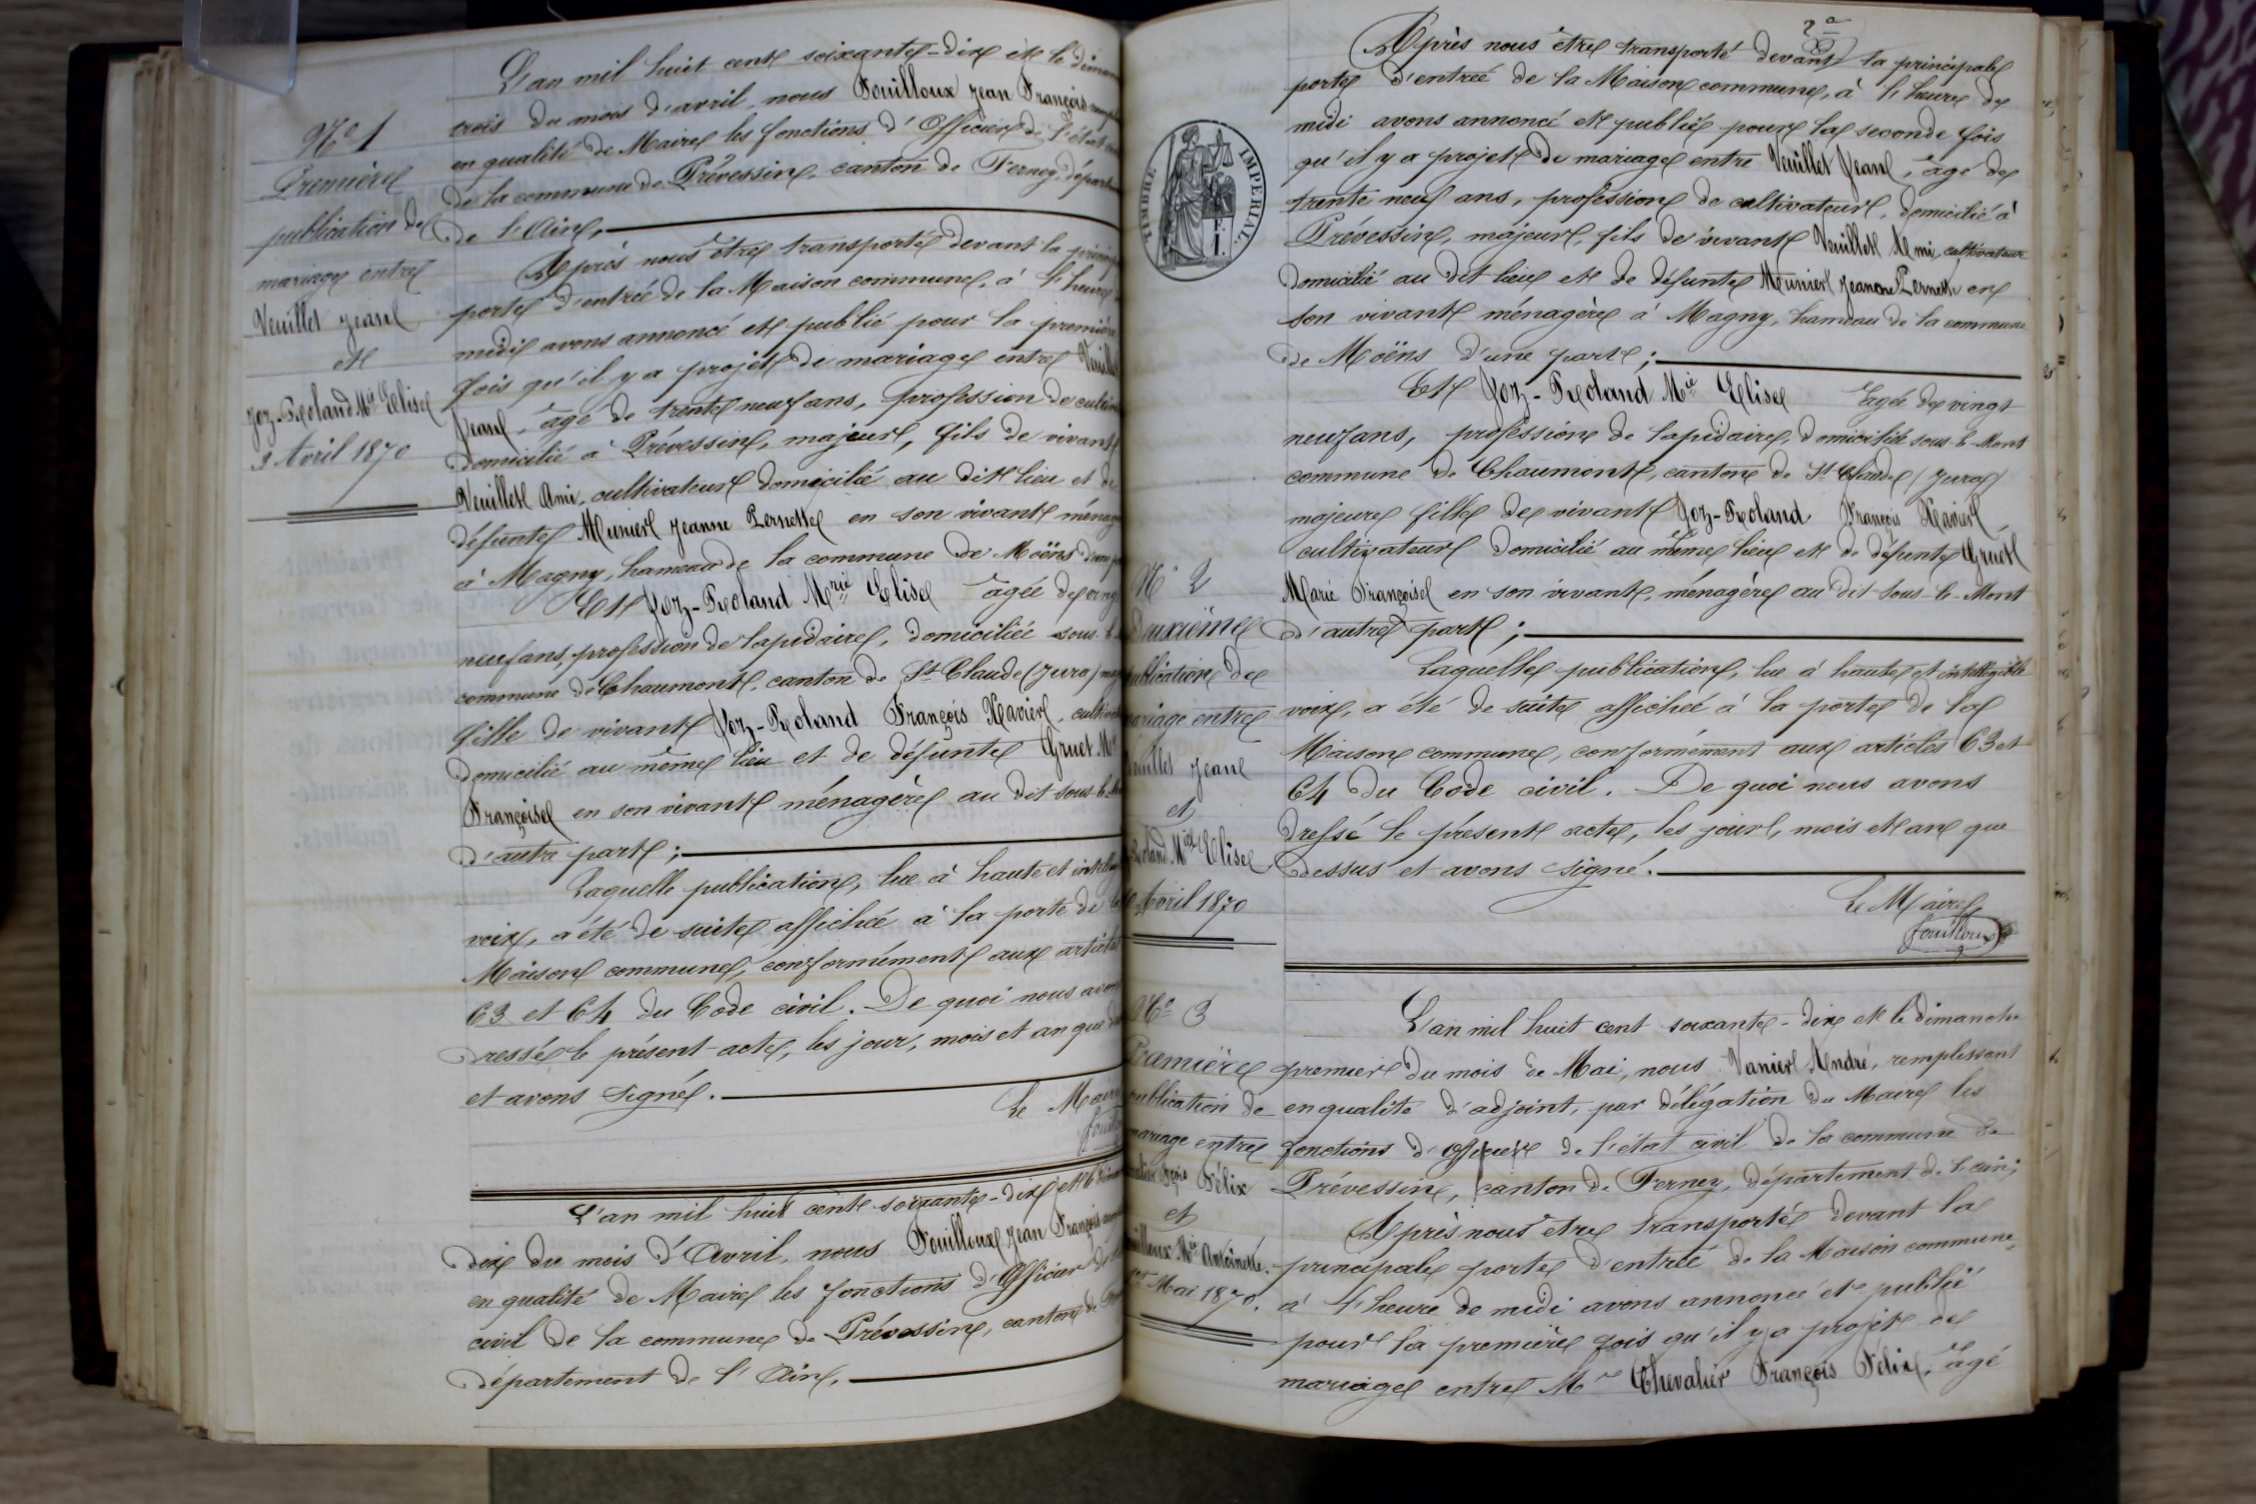 N° 1
Première
publication de
mariage entre
Veuillet Jean
et
Joz-Roland Mie Elise
3 Avril 1870
L'an mil huit cent soixante-dix et le
trois du mois d'avril, nous Fouilloux Jean François
en qualité de Maire les fonctions d'Officier de l'état
de la commune de Prévessin, canton de Ferney,
de l'Ain,
Après nous être transporté devant la
porte d'entrée de la Maison commune, à l'heure
midi avons annoncé et publié pour la première
fois qu'il y a projet de mariage entre Veuillet
Jean, âgé de trente neuf ans, profession de
domicilié à Prévessin, majeur, fils de vivant
Veuillet Ami, cultivateur domicilié au dit lieu et de
défunte Munier Jeanne Pernette en son vivant
à Magny, hameau de la commune de Moëns
Et Joz-Roland Mrie Elise âgée de
neuf ans, profession de lapidaire, domiciliée sous
commune de Chaumont, canton de St Claude (Jura)
fille de vivant Joz-Roland François Xavier,
domicilié au même lieu et de défunte Gruet Mie
Françoise en son vivant ménagère au dit sous-le-
d'autre part;
Laquelle publication, lue à haute et
voix, a été de suite affichée à la porte de
Maison commune, conformément aux articles
63 et 64 du Code civil. De quoi nous avons
dressé le présent acte, les jour, mois et an que
et avons signé.
Le Maire
L'an mil huit cent soixante-dix et le
dix du mois d'Avril, nous Fouilloux Jean François
en qualité de Maire les fonctions d'Officier de
civil de la commune de Prévessin, canton de
département de l'Ain,
TIMBRE IMPERIAL
2e
Après nous être transporté devant la principale
porte d'entrée de la Maison commune, à l'heure de
midi avons annoncé et publié pour la seconde fois
qu'il y a projet de mariage entre Veuillet Jean, âgé de
trente neuf ans, profession de cultivateur, domicilié à
Prévessin, majeur, fils de vivant Veuillet Ami, cultivateur
domicilié au dit lieu et de défunte Munier Jeanne Pernette en
son vivant ménagère à Magny, hameau de la commune
de Moëns d'une part;
Et Joz-Roland Mie Elise âgée de vingt
neuf ans, profession de lapidaire, domiciliée sous-le-Mont
commune de Chaumont, canton de St Claude (Jura)
majeure fille de vivant Joz-Roland François Xavier,
cultivateur domicilié au même lieu et de défunte Gruet
Marie Françoise en son vivant, ménagère au dit sous-le-Mont
d'autre part;
Laquelle publication, lue à haute et intelligible
voix, a été de suite affichée à la porte de la
Maison commune, conformément aux articles 63 et
64 du Code civil. De quoi nous avons
dressé le présent acte, les jour, mois et an que
dessus et avons signé.
Le Maire,
Fouilloux
N° 2
Deuxième
publication de
mariage entre
Veuillet Jean
et
Roland Mie Elise
Avril 1870
N° 3
Première
publication de
mariage entre
Félix
et
Mie Antoinette.
Mai 1870.
L'an mil huit cent soixante-dix et le dimanche
premier du mois de Mai, nous Vanier André, remplissant
en qualité d'adjoint, par délégation du Maire les
fonctions d'Officier de l'état civil de la commune de
Prévessin, canton de Ferney, département de l'ain;
Après nous être transporté devant la
principale porte d'entrée de la Maison commune,
à l'heure de midi avons annoncé et publié
pour la première fois qu'il y a projet de
mariage entre Mr Chevalier François Félix, âgé